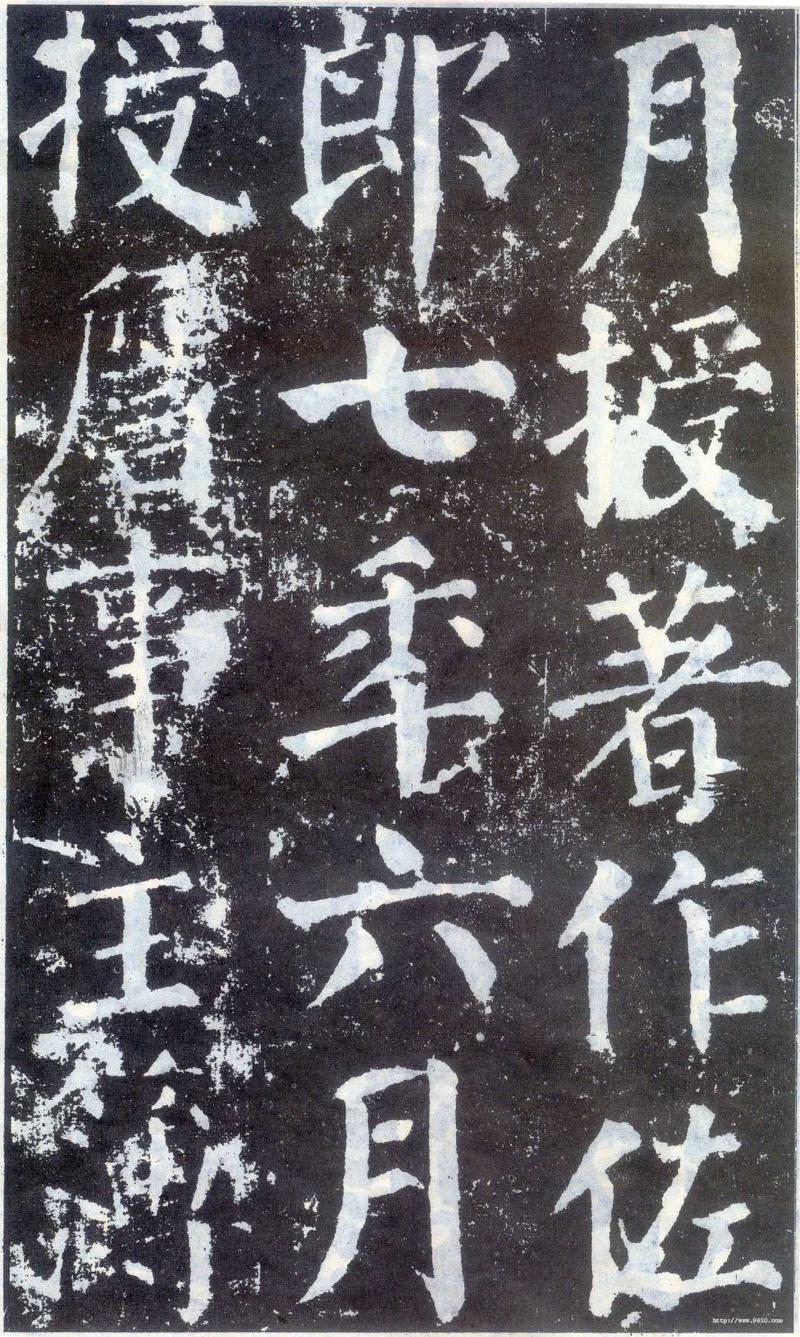 月授著作佐
郎七年六月
授詹事主簿
http://www.9610.com